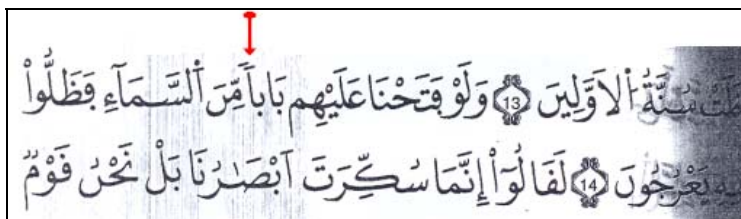 خَلَتْ سُنَّةُ اُ۬لَاوَّلِينَ 13 وَلَوْ فَتَحْنَا عَلَيْهِم بَاباً مِّنَ اَ۬لسَّمَآءِ فَظَلُّواْ
فِيهِ يَعْرُجُونَ 14 لَقَالُوٓاْ إِنَّمَا سُكِّرَتَ اَبْصَٰرُنَا بَلْ نَحْنُ قَوْمٌ